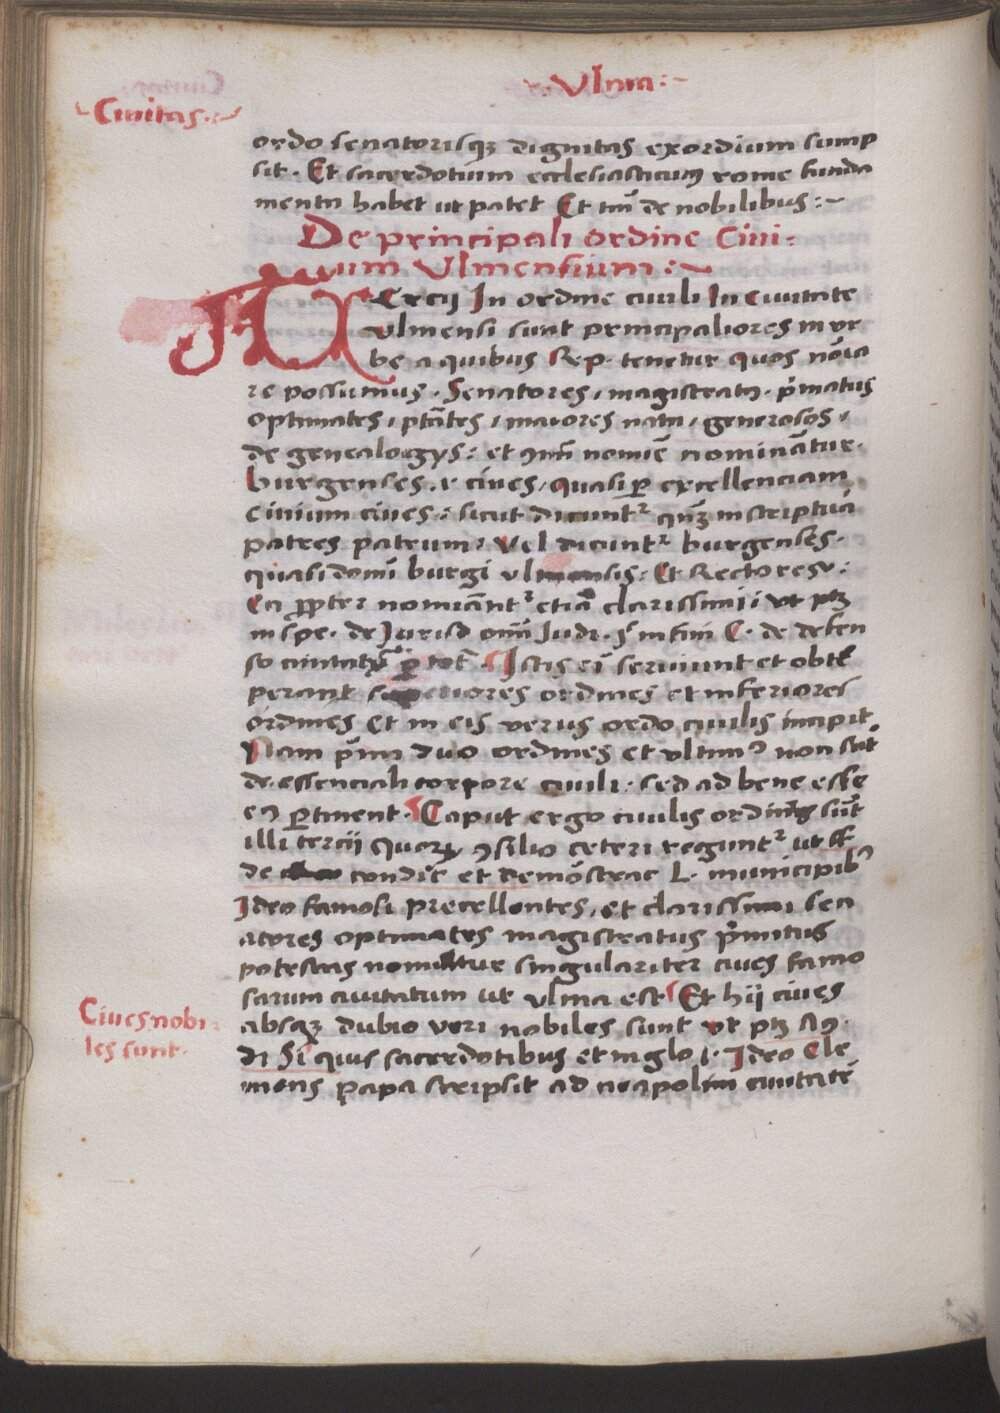 Vlma:~
Ciuitas.~
ordo senatorisqꝫ dignitas exordium sump
sit. Et sacerdotium ecclesiasticum rome funda
menta habet ut patet Et tm̄ de nobilibus:~
De principali ordine Ciui-
um Vlmensium:~
Tercij In ordine ciuili In Ciuitate
vlmensi sunt principaliores in vr
be a quibus Rep. tenetur quos noīa
re possumus. Senatores, magistratꝰ. p̄matus
optimates, ptātes, maiores natu, generosos,
de genealogys: et ꝯmū nomīe nominātur.
burgenses. v ciues, quasi ꝑ excellenciam
ciuium ciues: sicut dicuntᷣ qn̄qꝫ in scriptua
patres patrum: Vel dicuntᷣ burgenses.
quasi domī burgi vlmensis: Et Rectores:
Ea ꝓpter nomīantᷣ etiā clarissimi: vt ptꝫ
in spe. de Jurisd om̄ Judi. ꝭ in fin C. de defen
so ciuitatꝭ ꝑ tot̄. Istis eī seruiunt et obte
perant superiores ordines et inferiores
ordines Et in eis verus ordo ciuilis incipit
Nam p̄mi duo ordines et vltimꝰ non sūt
de essenciali corpore ciuili. sed ad bene esse
eꝰ ꝑtinent. Caput ergo ciuilis ordinis sūt
illi tercii quoꝝ ꝯsilio ceteri reguntᷣ ut ff
de condic̄ et demōstrac L. municipibꝰ
Ideo famosi precellentes, et clarissimi sen
atores optimates magistratus p̄mitus
potestas nominātur singulariter ciues famo
sarum ciuitatum ut vlma est Et hij ciues
absqꝫ dubio veri nobiles sunt vt ptꝫ
di Si quis sacerdotibus et in glo l. Ideo Cle
mens papa scripsit ad neapolim ciuitatē
Ciues nobi-
les sunt.